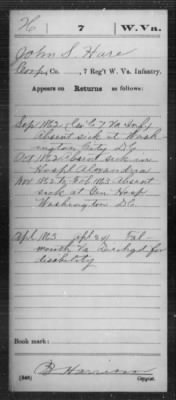 H 7 W. Vn.
John S. Hare
Corp, Co. , 7 Reg't W. Va. Infantry.
Appears on Returns as follows:
Sep 1862 Co C 7 Va Inf
Absent sick at Wash-
ington City D.C.
Oct 1862 Absent sick in
Hospl Alexandria
Nov 1862 to Feb 1863 Absent
sick at Gen Hosp
Washington D.C.
Apl 1863 Apl 24 Fal-
mouth Va Dischgd for
disability
Book mark:
Harrison
(546) Copyist.